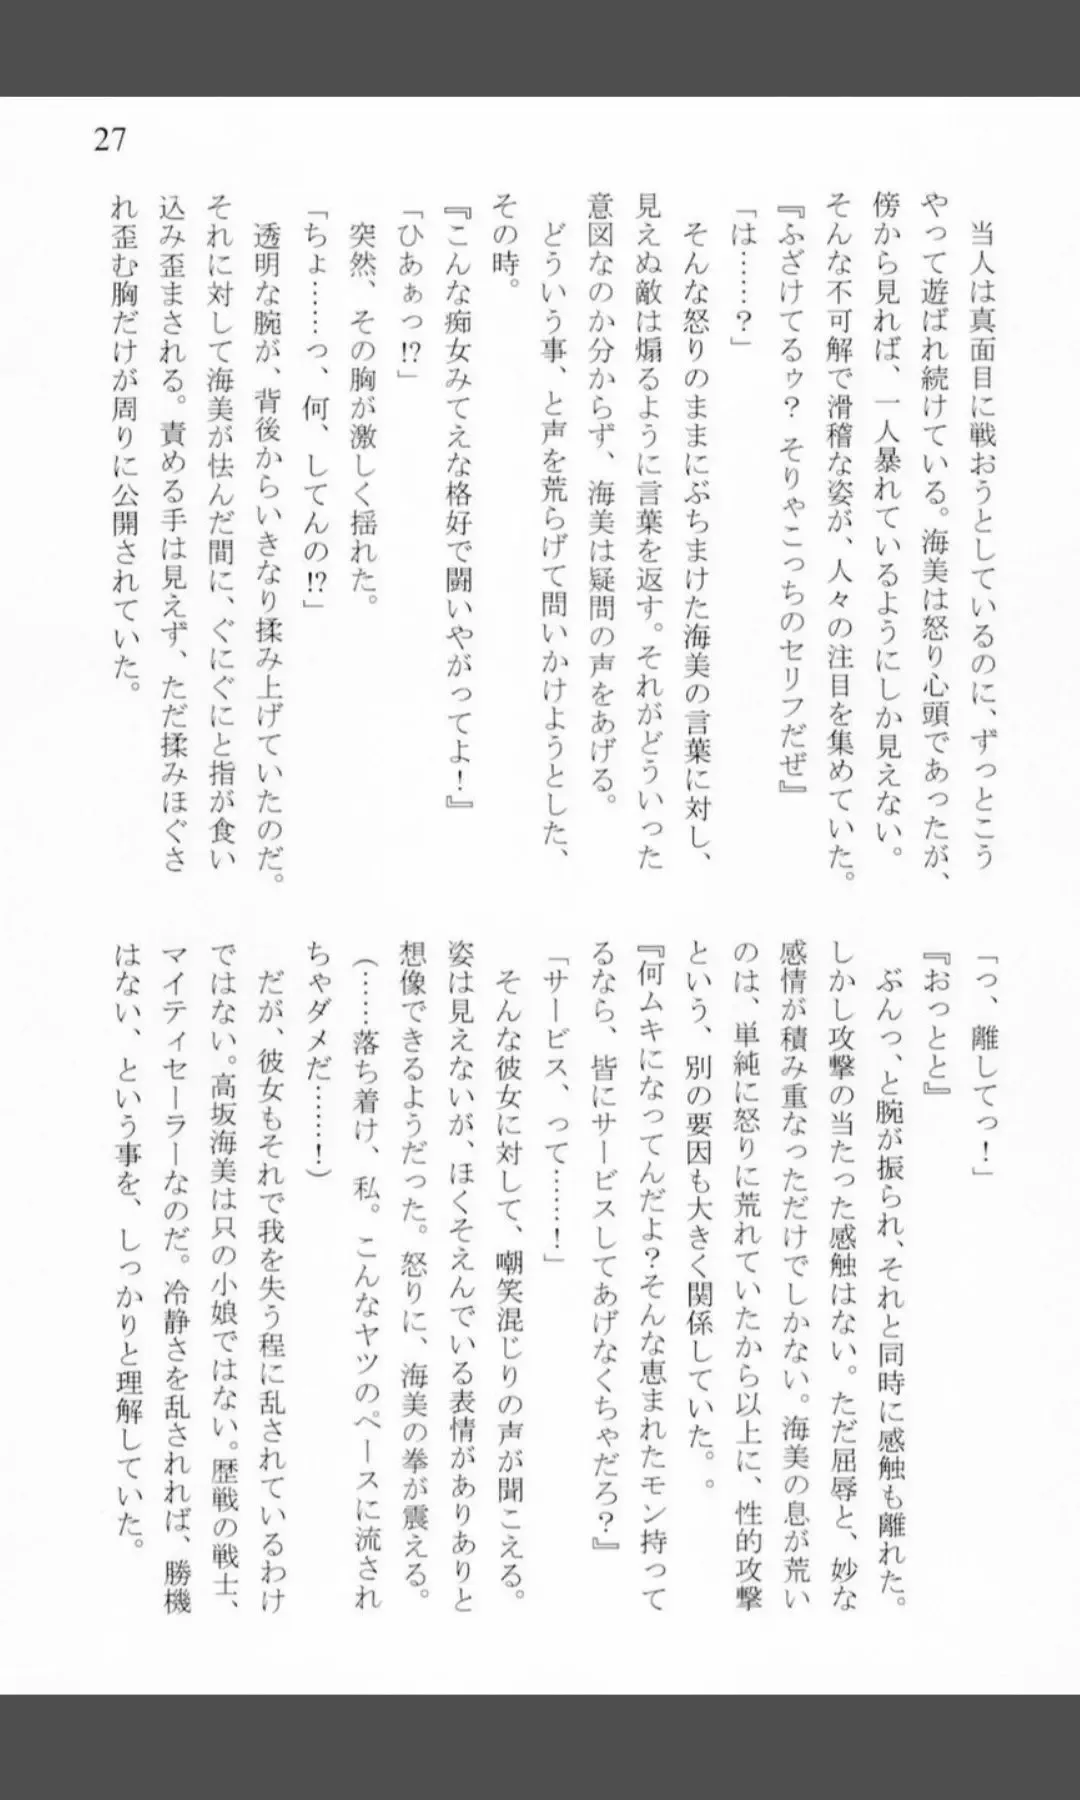 27
当人は真面目に戦おうとしているのに、ずっとこう
やって遊ばれ続けている。海美は怒り心頭であったが、
傍から見れば、一人暴れているようにしか見えない。
そんな不可解で滑稽な姿が、人々の注目を集めていた。
『ふざけてるゥ？ そりゃこっちのセリフだぜ』
「は……？」
そんな怒りのままにぶちまけた海美の言葉に対し、
見えぬ敵は煽るように言葉を返す。それがどういった
意図なのか分からず、海美は疑問の声をあげる。
どういう事、と声を荒らげて問いかけようとした、
その時。
『こんな痴女みてえな格好で闘いやがってよ！』
「ひあぁっ!?」
突然、その胸が激しく揺れた。
「ちょ……っ、何、してんの!?」
透明な腕が、背後からいきなり揉み上げていたのだ。
それに対して海美が怯んだ間に、ぐにぐにと指が食い
込み歪まされる。責める手は見えず、ただ揉みほぐさ
れ歪む胸だけが周りに公開されていた。
「っ、離してっ！」
『おっとと』
ぶんっ、と腕が振られ、それと同時に感触も離れた。
しかし攻撃の当たった感触はない。ただ屈辱と、妙な
感情が積み重なっただけでしかない。海美の息が荒い
のは、単純に怒りに荒れていたから以上に、性的攻撃
という、別の要因も大きく関係していた。。
『何ムキになってんだよ？そんな恵まれたモン持って
るなら、皆にサービスしてあげなくちゃだろ？』
「サービス、って……！」
そんな彼女に対して、嘲笑混じりの声が聞こえる。
姿は見えないが、ほくそえんでいる表情がありありと
想像できるようだった。怒りに、海美の拳が震える。
（……落ち着け、私。こんなヤツのペースに流され
ちゃダメだ……！）
だが、彼女もそれで我を失う程に乱されているわけ
ではない。高坂海美は只の小娘ではない。歴戦の戦士、
マイティセーラーなのだ。冷静さを乱されれば、勝機
はない、という事を、しっかりと理解していた。